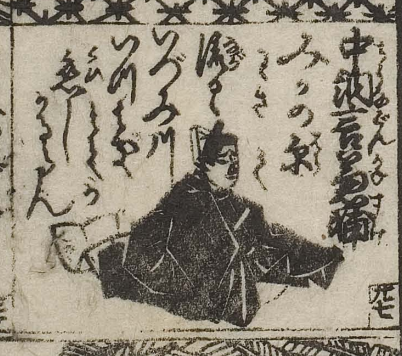 中納言兼輔
ちうなごんかねすけ
みかの原
わきて
流るゝ
いづみ川
いつみき
とてか
恋し
かるらん
廿七